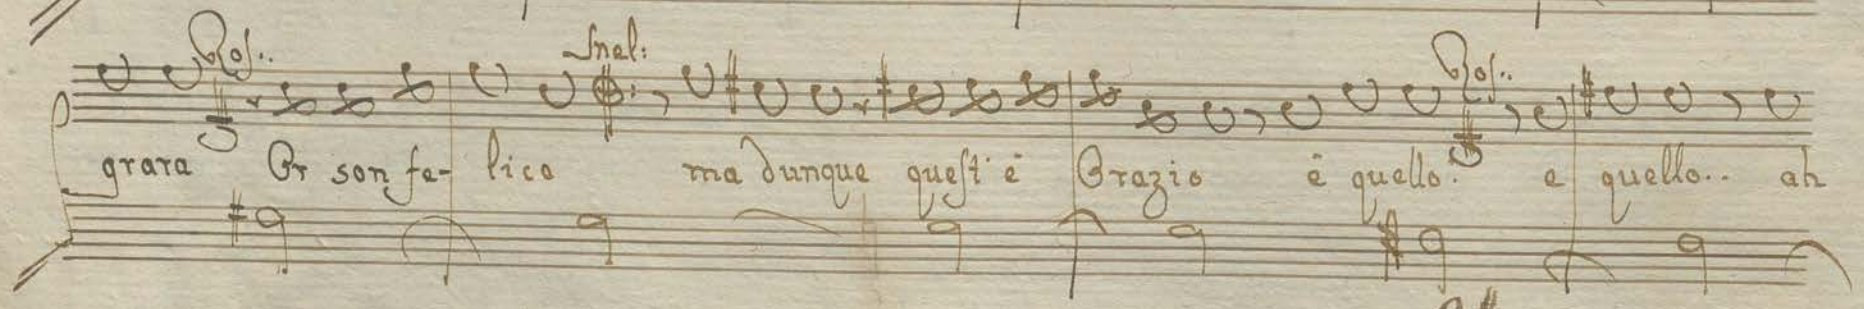 Ros.. Snel: Ros..
grata Or son fe- lice ma dunque quest' è Orazio è quello. e quello.. ah